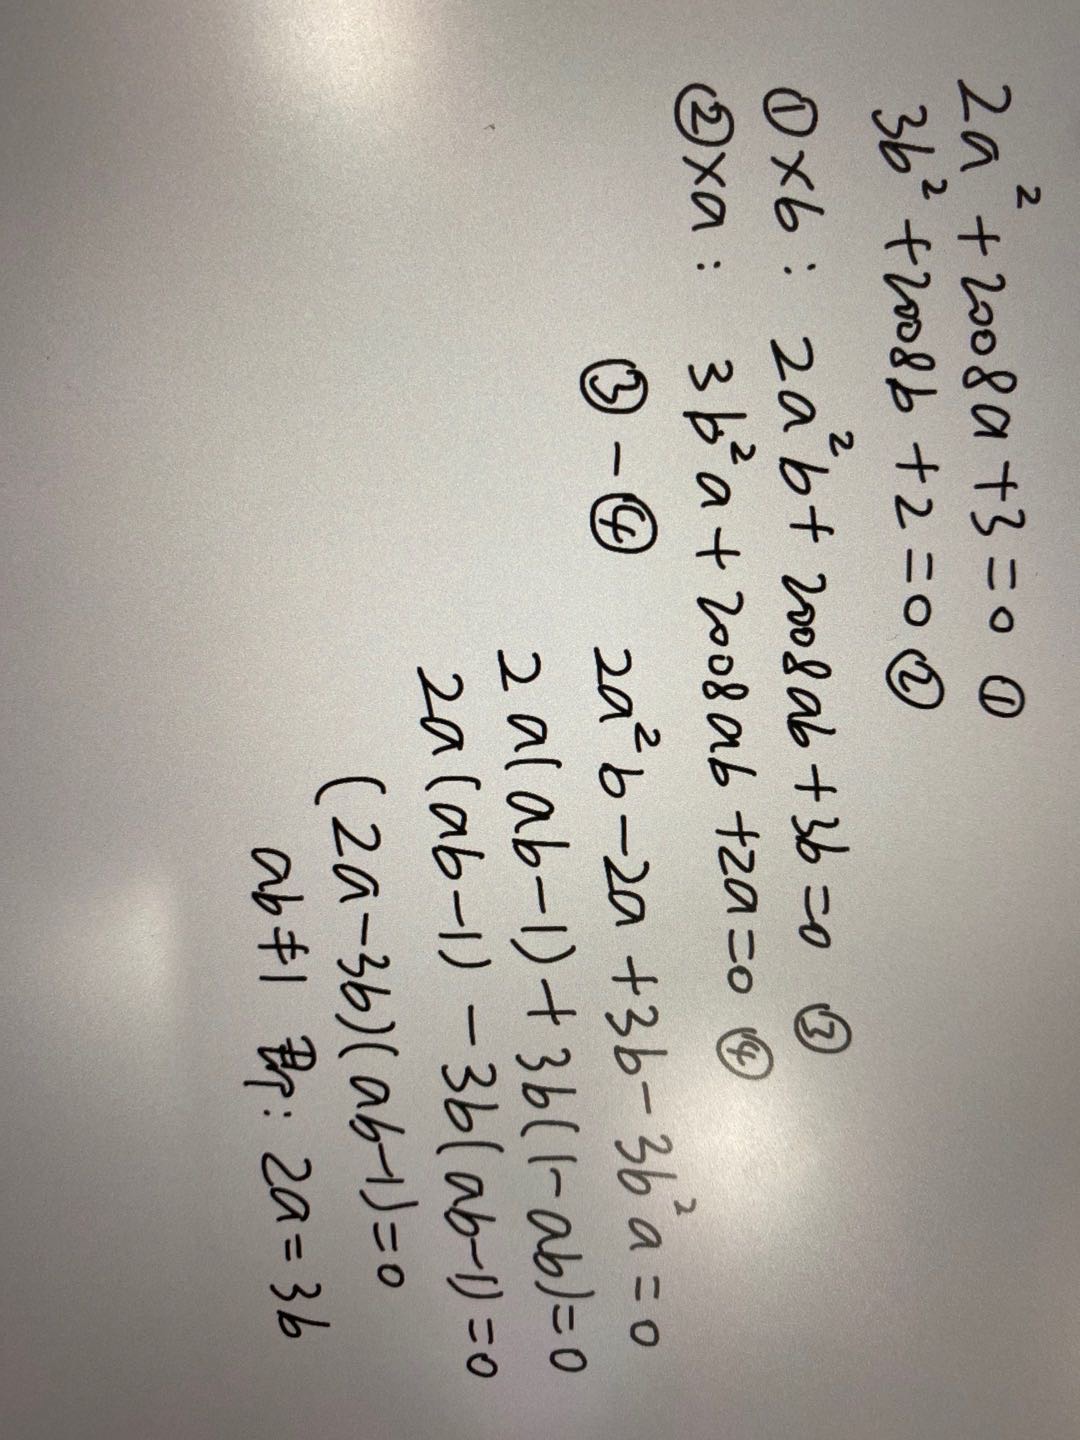 2a²+2008a+3=0 ①
3b²+2008b+2=0 ②
①×b: 2a²b+2008ab+3b=0 ③
②×a: 3b²a+2008ab+2a=0 ④
③-④ 2a²b-2a+3b-3b²a=0
2a(ab-1)+3b(1-ab)=0
2a(ab-1)-3b(ab-1)=0
(2a-3b)(ab-1)=0
ab≠1 即: 2a=3b